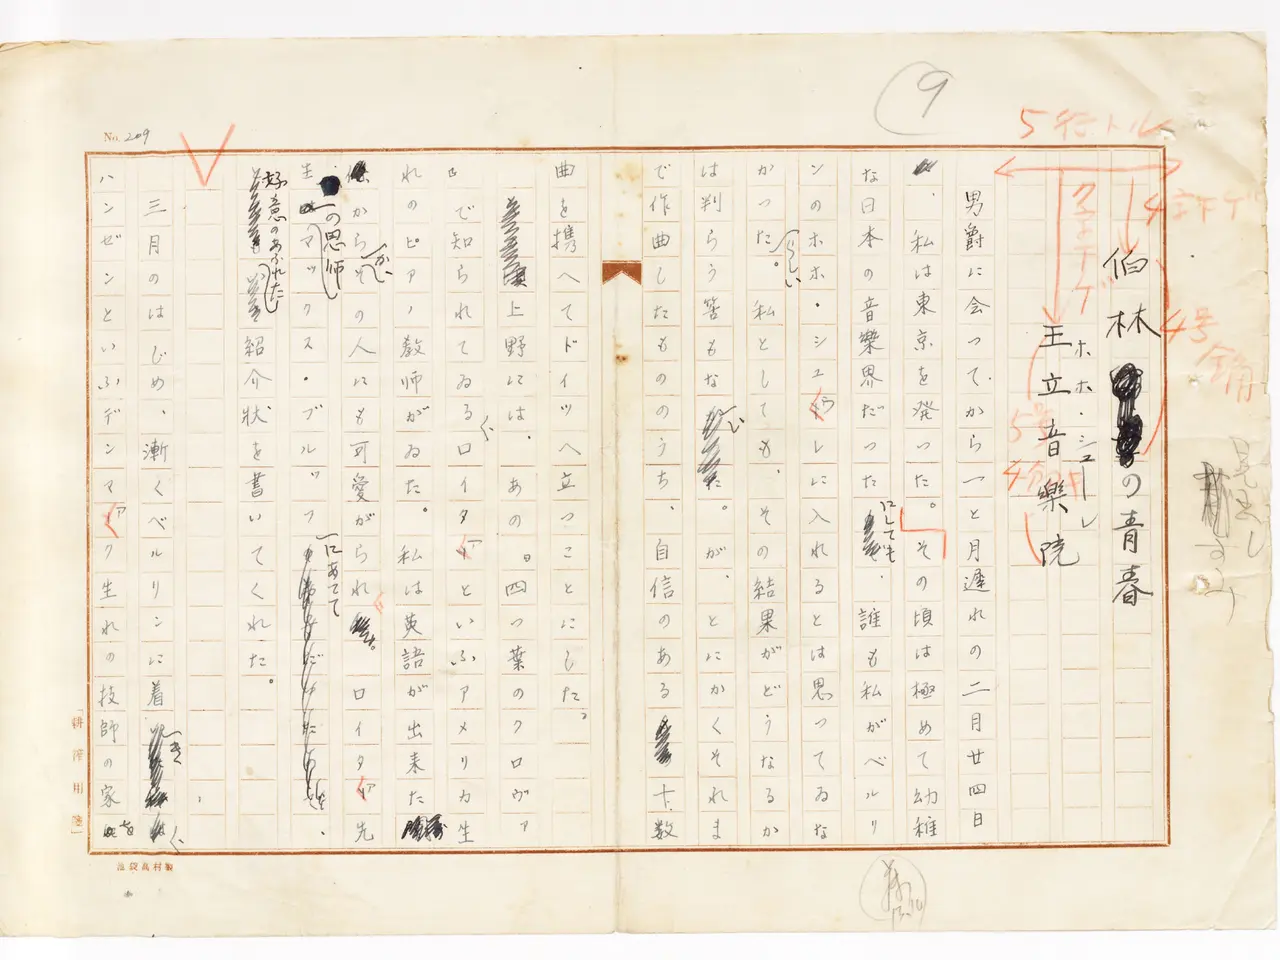 9
No. 209
5行トル
4字下ゲ
4号
伯林の青春
ホホ・シューレ
王立音樂院
男爵に会つてから一と月遅れの二月廿四日
、私は東京を発つた。その頃は極めて幼稚
な日本の音樂界だつたにしても、誰も私がベルリ
ンのホホ・シユウレに入れるとは思つてゐな
かつたらしい。私としても、その結果がどうなるか
は判らう筈もない。が、とにかくそれま
で作曲したもののうち、自信のある十数
曲を携へてドイツへ立つことにした。
上野には、あの『四つ葉のクロヴァ
』で知られてゐるロイタアといふアメリカ生
れのピアノ教師がゐた。私は英語が出来た
からその人にも可愛がられ、ロイタア先
生の恩師マックス・ブルッフにあてて、
好意のあふれた紹介状を書いてくれた。
三月のはじめ、漸くベルリンに着き
ハンゼンといふデンマアク生れの技師の家
耕淬用箋
池袋髙村製